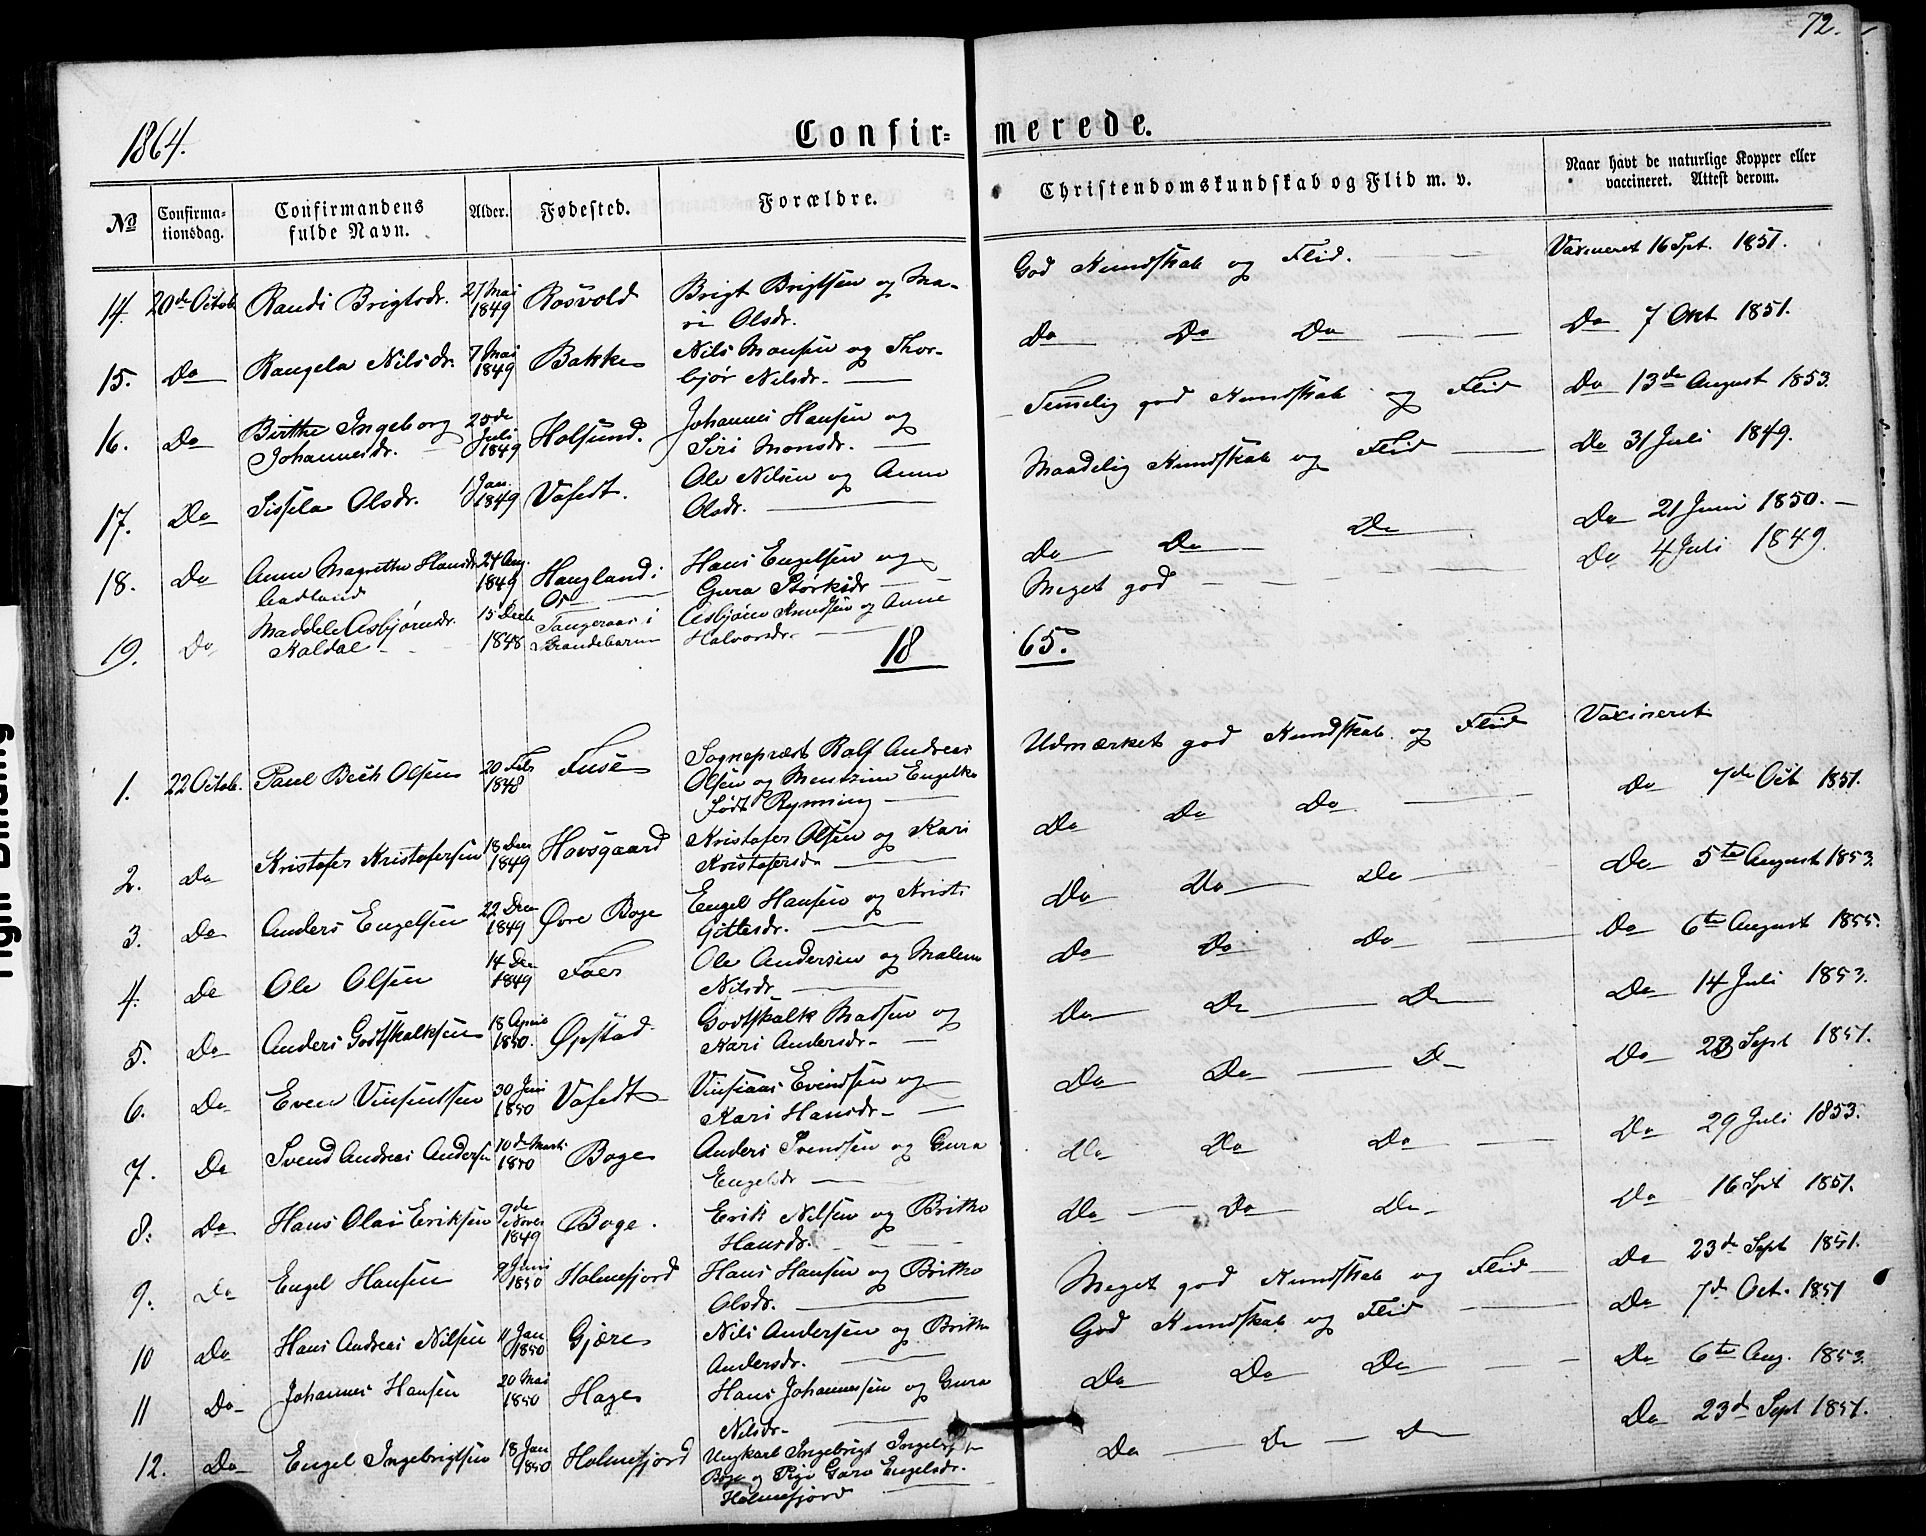 72.
1864.
Confir- merede.
No Confirma-tionsdag. Confirmandens fulde Navn. Alder. Fødested. Forældre. Christendomskundskab og Flid m. v. Naar havt de naturlige Kopper eller vaccineret. Attest derom.
14. 20de Octob. Randi Brigtsdr. 27 Mai 1849 Rosvold Brigt Brigtsen og Ma-
ri Olsdr. God Kundskab og Flid. Vaxineret 16 Spt. 1851.
15. Do Rangela Nilsdr. 7 Mai 1849 Bakke Nils Monsen og Thor-
bjør Nilsdr. Do Do Do Do 7 Okt 1851.
16. Do Birthe Ingeborg
Johannesdr. 25de Juli 1849 Holsund. Johannes Hansen og
Siri Monsdr. Temelig god Kundskab og Flid Do 13de August 1853.
17. Do Sissela Olsdr. 1 Jan. 1849 Vafedt. Ole Nilsen og Anne
Olsdr. Maadelig Kundskab og Flid Do 31 Juli 1849.
18. Do Anne Magrethe Hansdr.
24 Aug. 1849 Haugland i
Os Hans Engelsen og
Gura Størksdr Do Do Do Do 21 Juni 1850.
19. Do Maddele Asbjørnsdr.
Kaldal 15 Decb 1848 Tangeraas i
Strandebarm Asbjørn Knudsen og Anne
Halvorsdr. Meget god Do 4 Juli 1849.
18 65.
1. 22 Octob. Paul Bech Olsen 20 Febr 1848 Fuse Sognepræst Rolf Andreas
Olsen og Mentzine Engelke
Født Rynning Udmærket god Kundskab og Flid Vaxineret
2. Do Kristofer Kristofersen 18 Dec 1849 Havsgaard Kristofer Olsen og Kari
Kristofersdr Do Do Do Do 7de Oct 1851.
3. Do Anders Engelsen 22 Dec 1849 Øvre Boge Engel Hansen og Kristi
Gittesdr. Do Do Do Do 5te August 1853.
4. Do Ole Olsen 14 Dec 1849 Ole Andersen og Malene
Nilsdr Do Do Do Do 6te August 1855.
5. Do Anders Godtskalksen 18 April 1850. Øpstad Godtskalk Madsen og
Kari Andersdr. Do Do Do Do 14 Juli 1853.
6. Do Even Vinsentsen 30 Juni 1850 Vafedt og
Kari Hansdr. Do Do Do Do Sept 1851.
7. Do Svend Andreas Andersen 10de Marts 1850 Boge Anders Svendsen og Gura
Engelsdr Do Do Do Do 29 Juli 1853.
8. Do Hans Olai Eriksen 9de Nover 1849 Boge. Erik Nilsen og Brithe
Hansdr. Do Do Do Do 16 Spt 1851.
9. Do Engel Hansen 9 Juni 1850 Holmefjord Hans Hansen og Brithe
Olsdr. Meget god Kundskab og Flid Do 23de Sept 1851.
10 Do Hans Andreas Nilsen 11 Jan 1850 Gjære Nils Andersen og Brithe
Andersdr. God Kundskab og Flid Do 7de Oct. 1851
11 Do Johannes Hansen 20 Mai 1850 Hage Hans Johannessen og Gura
Nilsdr. Do Do Do Do 6te Aug. 1853.
12. Do Engel Ingebrigtsen 18 Jan 1850 Holmefjord Ungkarl Ingebrigt
Boge og Pige Guro Engelsdr.
Holmefjord Do Do Do Do 23de Sept 1851.
Tight Binding